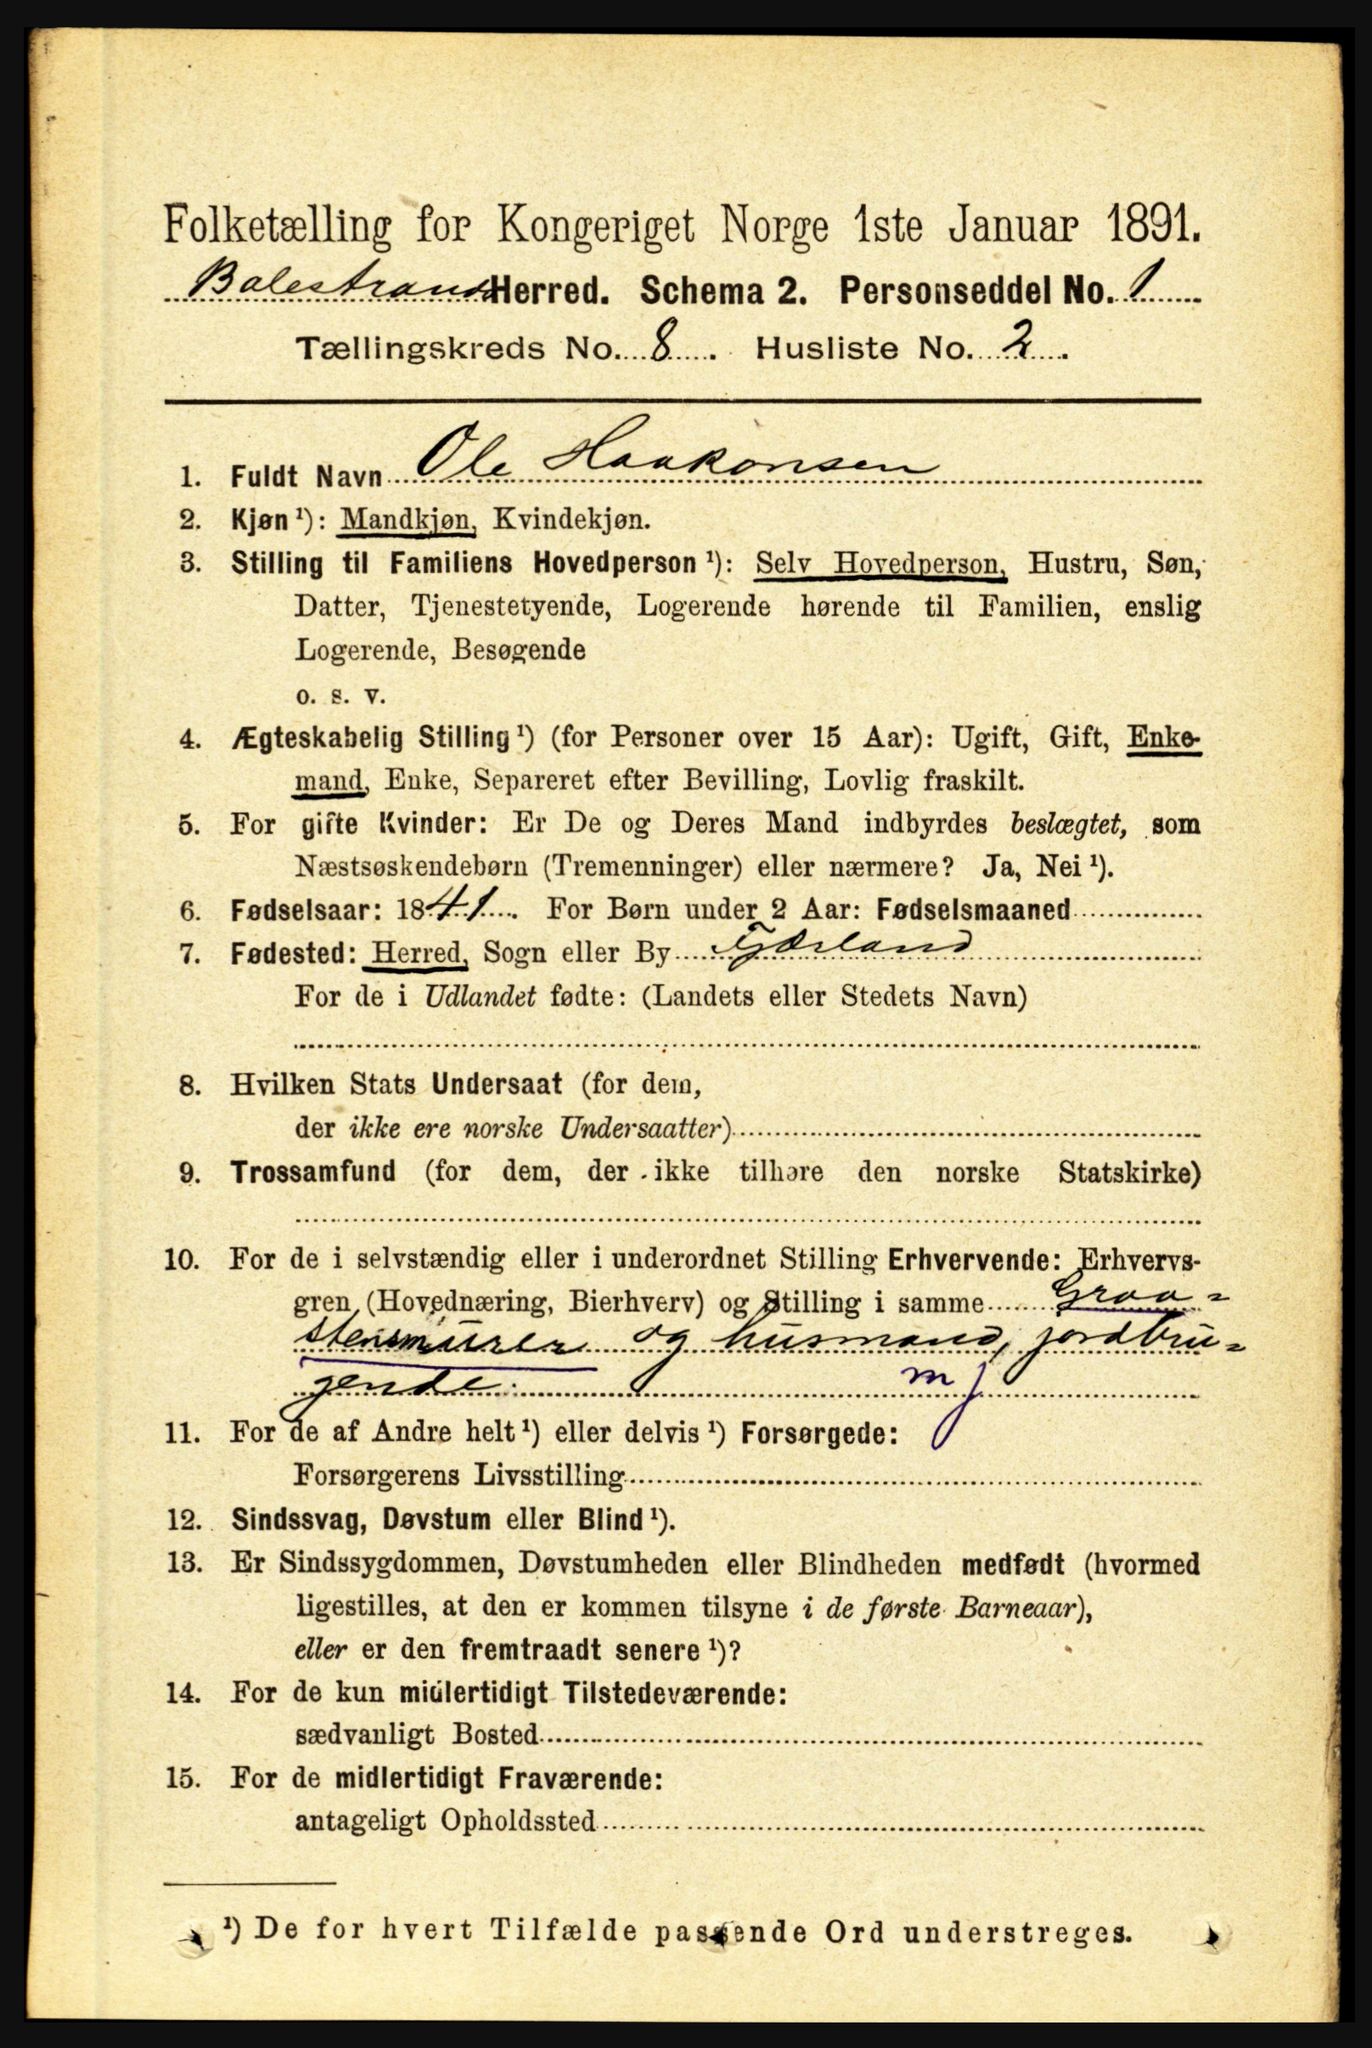 Folketælling for Kongeriget Norge 1ste Januar 1891.
Balestrand Herred. Schema 2. Personseddel No. 1
Tællingskreds No. 8. Husliste No. 2.
1. Fuldt Navn Ole Haakonsen
2. Kjøn ¹): Mandkjøn, Kvindekjøn.
3. Stilling til Familiens Hovedperson ¹): Selv Hovedperson, Hustru, Søn,
Datter, Tjenestetyende, Logerende hørende til Familien, enslig
Logerende, Besøgende
o. s. v.
4. Ægteskabelig Stilling ¹) (for Personer over 15 Aar): Ugift, Gift, Enke-
mand, Enke, Separeret efter Bevilling, Lovlig fraskilt.
5. For gifte Kvinder: Er De og Deres Mand indbyrdes beslægtet, som
Næstsøskendebørn (Tremenninger) eller nærmere? Ja, Nei ¹).
6. Fødselsaar: 1841. For Børn under 2 Aar: Fødselsmaaned
7. Fødested: Herred, Sogn eller By Fjærland
For de i Udlandet fødte: (Landets eller Stedets Navn)
8. Hvilken Stats Undersaat (for dem,
der ikke ere norske Undersaatter)
9. Trossamfund (for dem, der ikke tilhøre den norske Statskirke)
10. For de i selvstændig eller i underordnet Stilling Erhvervende: Erhvervs-
gren (Hovednæring, Bierhverv) og Stilling i samme Graa-
stensmurer og husmand, jordbru-
gende. m j
11. For de af Andre helt ¹) eller delvis ¹) Forsørgede:
Forsørgerens Livsstilling
12. Sindssvag, Døvstum eller Blind ¹).
13. Er Sindssygdommen, Døvstumheden eller Blindheden medfødt (hvormed
ligestilles, at den er kommen tilsyne i de første Barneaar),
eller er den fremtraadt senere ¹)?
14. For de kun midlertidigt Tilstedeværende:
sædvanligt Bosted
15. For de midlertidigt Fraværende:
antageligt Opholdssted
¹) De for hvert Tilfælde passende Ord understreges.